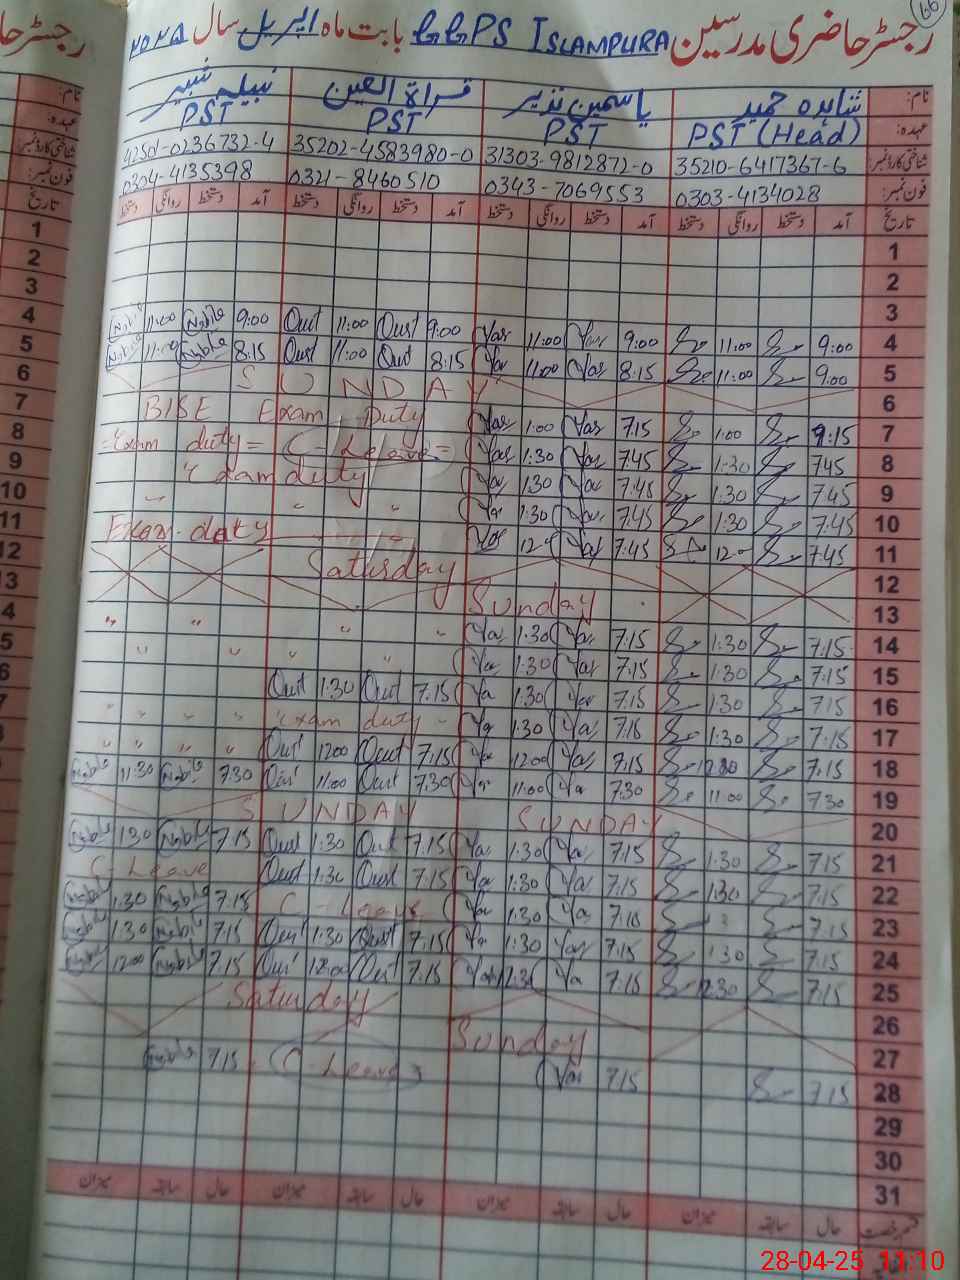 66
رجسٹر حاضری مدرسین GGPS ISLAMPURA بابت ماہ اپریل سال ۲۰۲۵
نام: شاہدہ حمید یاسمین نذیر قراۃ العین نبیلہ شبیر
عہدہ: PST (Head) PST PST PST
شناختی کارڈ نمبر: 35210-6417367-6 31303-9812872-0 35202-4583980-0
فون نمبر: 0303-4134028 0343-7069553 0321-8460510 0304-4135398
تاریخ آمد دستخط روانگی دستخط آمد دستخط روانگی دستخط آمد دستخط روانگی دستخط آمد دستخط روانگی دستخط تاریخ
1
2
3
4 Nabila 11:00 Nabila 9:00 Qurat 11:00 Qurat 9:00 Yas 11:00 Yas 9:00 11:00 9:00 4
5 Nabila 11:00 Nabila 8:15 Qurat 11:00 Qurat 8:15 Yas 11:00 Yas 8:15 11:00 9:00 5
6 SUNDAY 6
7 BISE Exam Duty Yas 1:00 Yas 7:15 1:00 9:15 7
8 =Exam duty= C-Leave= Yas 1:30 Yas 7:45 1:30 7:45 8
9 Exam duty Yas 1:30 Yas 7:45 1:30 7:45 9
10 " " " Yas 1:30 Yas 7:45 1:30 7:45 10
11 Exam duty Yas 12 Yas 7:45 12 7:45 11
12 Saturday 12
13 Sunday 13
14 " " " " Yas 1:30 Yas 7:15 1:30 7:15 14
15 " " " " Yas 1:30 Yas 7:15 1:30 7:15 15
16 Qurat 1:30 Qurat 7:15 Yas 1:30 Yas 7:15 1:30 7:15 16
17 " " " " Exam duty Yas 1:30 Yas 7:15 1:30 7:15 17
18 " " " " Qurat 1200 Qurat 7:15 Yas 1200 Yas 7:15 7:15 18
19 Nabila 11:30 Nabila 7:30 Qurat 11:00 Qurat 7:30 Yas 11:00 Yas 7:30 11:00 7:30 19
20 SUNDAY SUNDAY 20
21 Nabila 1:30 Nabila 7:15 Qurat 1:30 Qurat 7:15 Yas 1:30 Yas 7:15 1:30 7:15 21
22 C-Leave Qurat 1:30 Qurat 7:15 Yas 1:30 Yas 7:15 1:30 7:15 22
23 Nabila 1:30 Nabila 7:15 C-Leave Yas 1:30 Yas 7:15 23
24 Nabila 1:30 Nabila 7:15 Qurat 1:30 Qurat 7:15 Yas 1:30 Yas 7:15 1:30 7:15 24
25 Nabila 1200 Nabila 7:15 Qurat Qurat 7:15 Yas Yas 7:15 12:30 7:15 25
26 Saturday 26
27 Sunday 27
28 Nabila 7:15 C-Leave Yas 7:15 7:15 28
29
30
31
حال سابقہ میزان حال سابقہ میزان حال سابقہ میزان حال سابقہ میزان
28-04-25 11:10